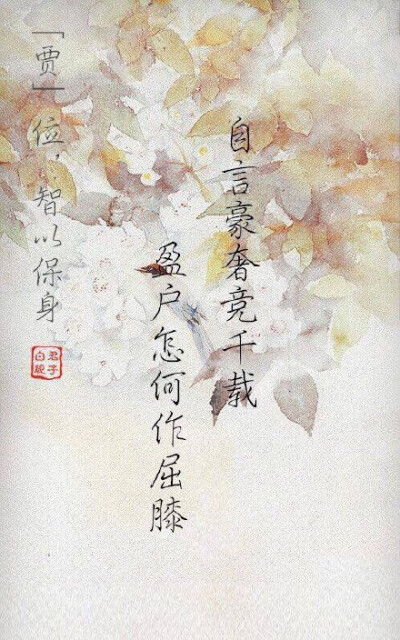 自言豪奢竞千载
盈户怎何作屈膝
「贾」位，智以保身
君子